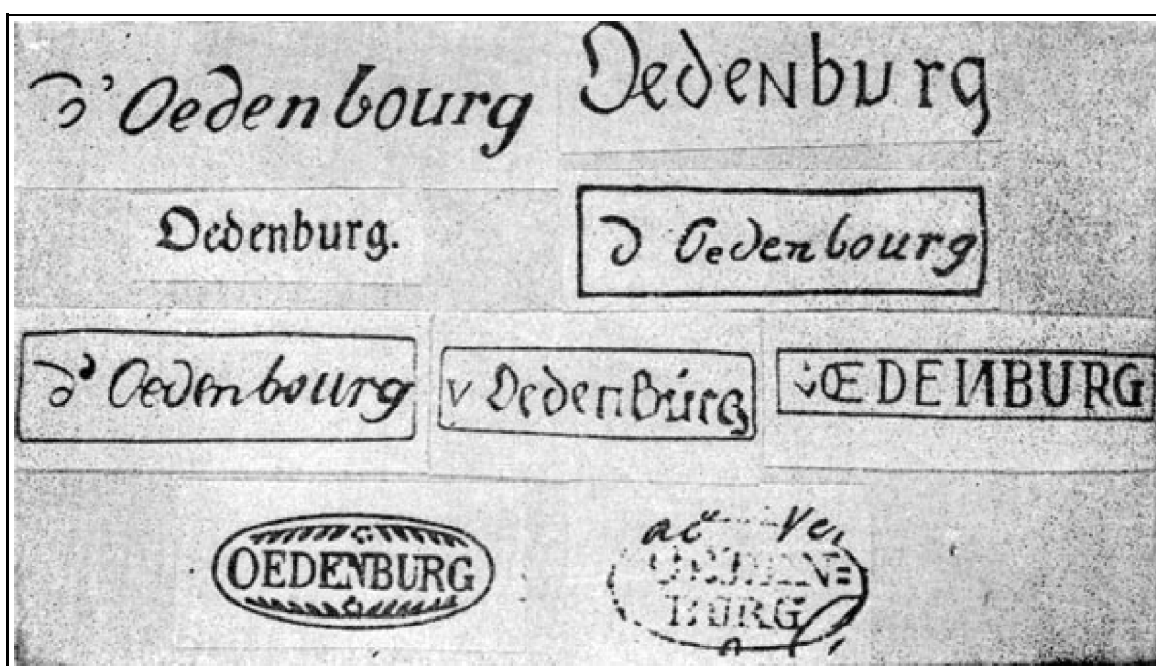 d'Oedenbourg
Oedenburg
Oedenburg.
d Oedenbourg
d'Oedenbourg
v OedenBurg
v: ŒDENBURG
OEDENBURG
OEDEN=
BURG